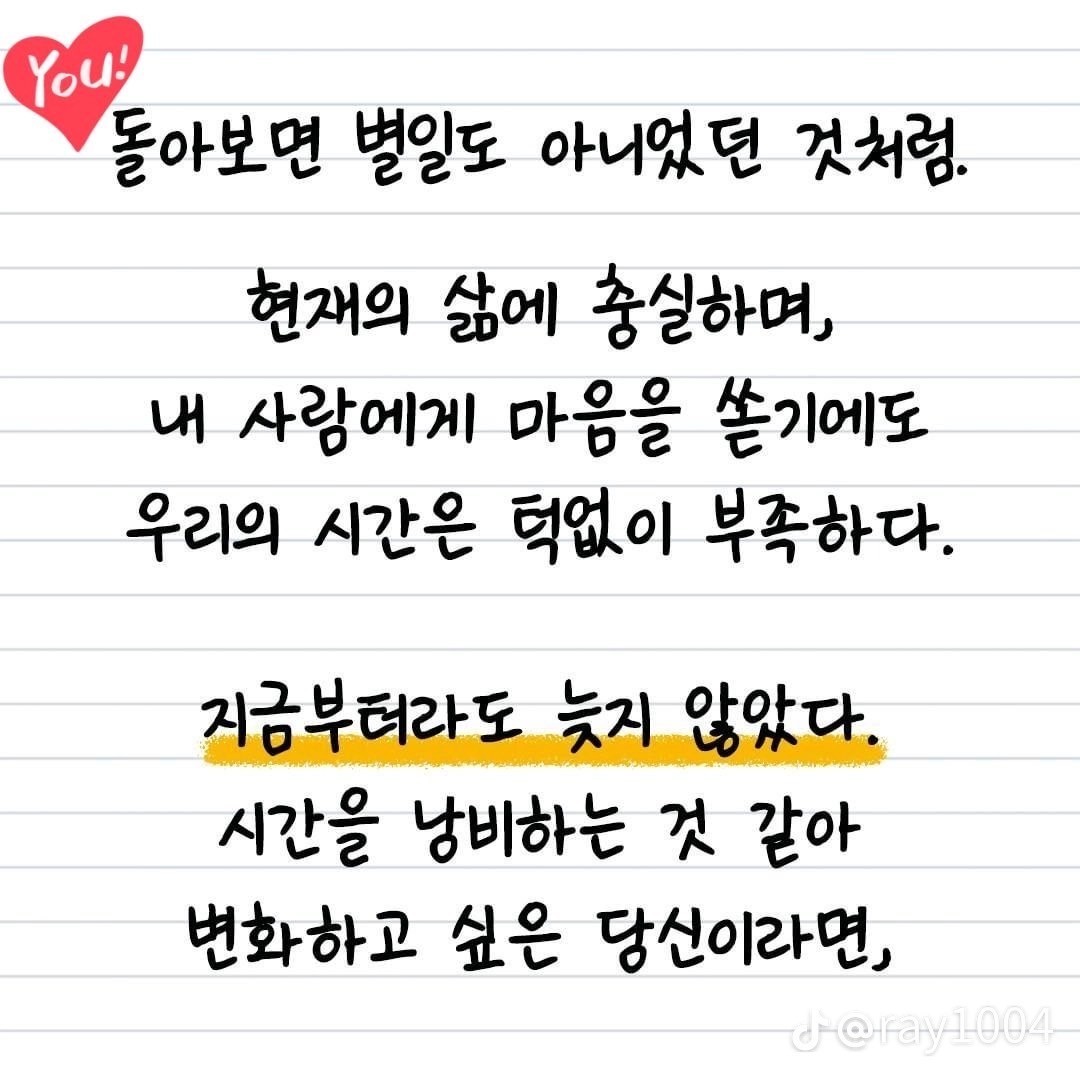 You!
돌아보면 별일도 아니었던 것처럼.
현재의 삶에 충실하며,
내 사람에게 마음을 쏟기에도
우리의 시간은 턱없이 부족하다.
지금부터라도 늦지 않았다.
시간을 낭비하는 것 같아
변화하고 싶은 당신이라면,
@ray1004